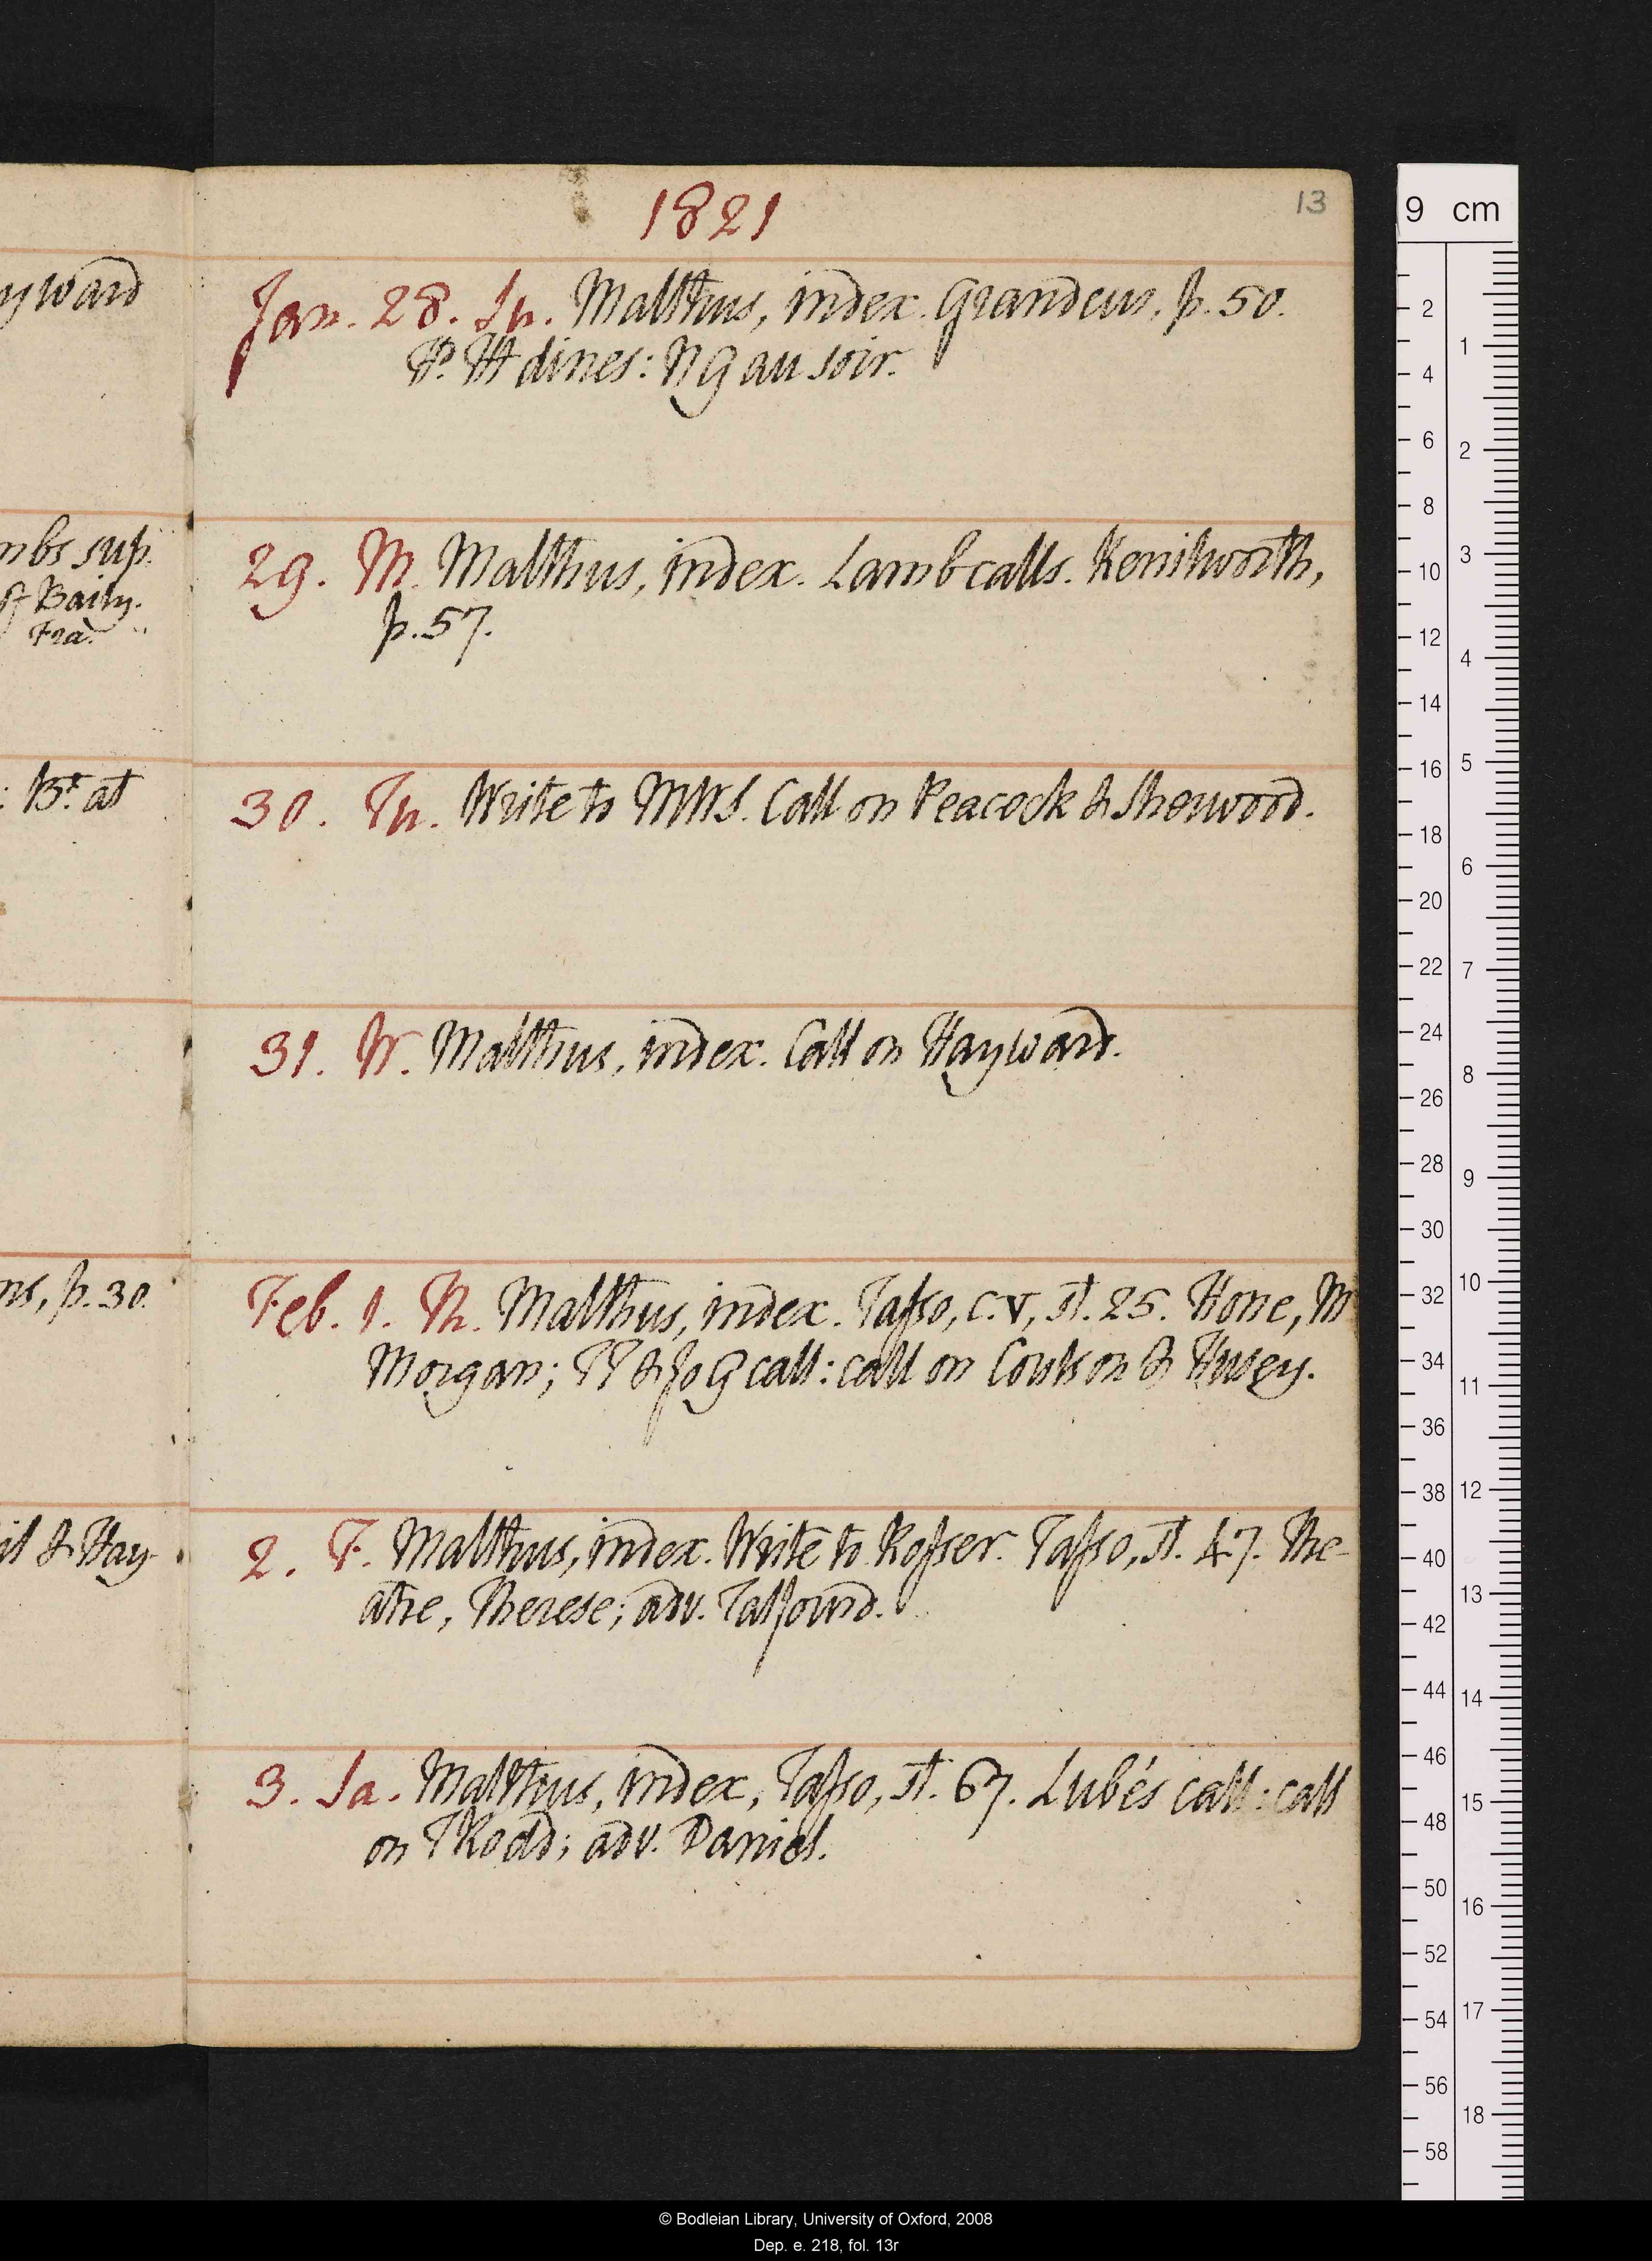 yward
mbs sup.
of Baily.
Fra.
: Bt. at
ns, p. 30.
il & Hay-
1821
13
Jan. 28. Su. Malthus, index. Grandeur, p. 50.
P. H dines: N G au soir.
29. M. Malthus, index. Lamb calls. Kenilworth,
p. 57.
30. Tu. Write to MWS. Call on Peacock & Sherwood.
31. W. Malthus, index. Call on Hayward.
Feb. 1. Th. Malthus, index. Taſso, c. v, st. 25. Hone, M
Morgan; TT & Jo G call: call on Coulson & Husey.
2. F. Malthus, index. Write to Roſser. Taſso, st. 47. The-
atre, Therese; adv. Talfourd.
3. Sa. Malthus, index, Taſso, st. 67. Lubé's call: call
on T Rodd; adv. Daniel.
9 cm
2
1
4
6
2
8
3
10
12
4
14
16
5
18
6
20
22
7
24
8
26
28
9
30
32
10
34
11
36
38
12
40
13
42
44
14
46
15
48
50
16
52
54
17
56
18
58
© Bodleian Library, University of Oxford, 2008
Dep. e. 218, fol. 13r